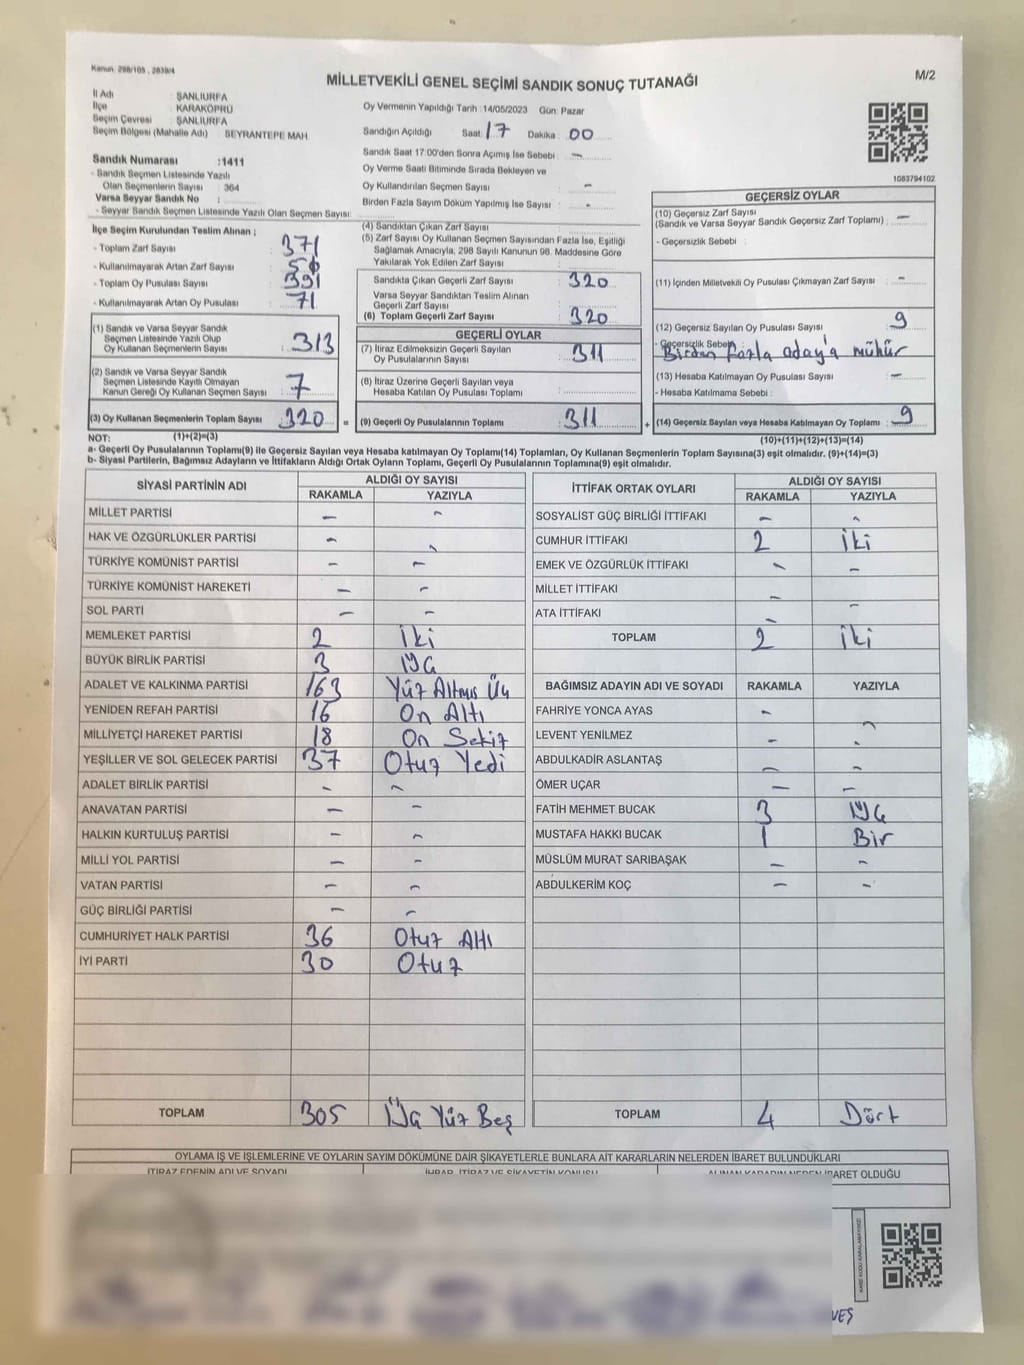 Kanun: 298/105 , 2839/4
MİLLETVEKİLİ GENEL SEÇİMİ SANDIK SONUÇ TUTANAĞI
M/2
İl Adı : ŞANLIURFA
İlçe : KARAKÖPRÜ
Seçim Çevresi : ŞANLIURFA
Seçim Bölgesi (Mahalle Adı) : SEYRANTEPE MAH.
Sandık Numarası :1411
- Sandık Seçmen Listesinde Yazılı
Olan Seçmenlerin Sayısı : 364
Varsa Seyyar Sandık No :
- Seyyar Sandık Seçmen Listesinde Yazılı Olan Seçmen Sayısı:
Oy Vermenin Yapıldığı Tarih :14/05/2023 Gün: Pazar
Sandığın Açıldığı Saat: 17 Dakika: 00
Sandık Saat 17:00'den Sonra Açımış İse Sebebi : -
Oy Verme Saati Bitiminde Sırada Bekleyen ve
Oy Kullandırılan Seçmen Sayısı : -
Birden Fazla Sayım Döküm Yapılmış İse Sayısı : -
1083794102
İlçe Seçim Kurulundan Teslim Alınan ;
- Toplam Zarf Sayısı : 371
- Kullanılmayarak Artan Zarf Sayısı :
- Toplam Oy Pusulası Sayısı : 391
- Kullanılmayarak Artan Oy Pusulası : 71
(1) Sandık ve Varsa Seyyar Sandık
Seçmen Listesinde Yazılı Olup
Oy Kullanan Seçmenlerin Sayısı : 313
(2) Sandık ve Varsa Seyyar Sandık
Seçmen Listesinde Kayıtlı Olmayan
Kanun Gereği Oy Kullanan Seçmen Sayısı : 7
(3) Oy Kullanan Seçmenlerin Toplam Sayısı : 320
(4) Sandıktan Çıkan Zarf Sayısı :
(5) Zarf Sayısı Oy Kullanan Seçmen Sayısından Fazla İse, Eşitliği
Sağlamak Amacıyla, 298 Sayılı Kanunun 98. Maddesine Göre
Yakılarak Yok Edilen Zarf Sayısı :
Sandıkta Çıkan Geçerli Zarf Sayısı : 320
Varsa Seyyar Sandıktan Teslim Alınan
Geçerli Zarf Sayısı :
(6) Toplam Geçerli Zarf Sayısı : 320
GEÇERLİ OYLAR
(7) İtiraz Edilmeksizin Geçerli Sayılan
Oy Pusulalarının Sayısı : 311
(8) İtiraz Üzerine Geçerli Sayılan veya
Hesaba Katılan Oy Pusulası Toplamı :
= (9) Geçerli Oy Pusulalarının Toplamı : 311 +
GEÇERSİZ OYLAR
(10) Geçersiz Zarf Sayısı
(Sandık ve Varsa Seyyar Sandık Geçersiz Zarf Toplamı) : -
- Geçersizlik Sebebi :
(11) İçinden Milletvekili Oy Pusulası Çıkmayan Zarf Sayısı : -
(12) Geçersiz Sayılan Oy Pusulası Sayısı : 9
- Geçersizlik Sebebi : Birden fazla aday'a mühür
(13) Hesaba Katılmayan Oy Pusulası Sayısı : -
- Hesaba Katılmama Sebebi :
(14) Geçersiz Sayılan veya Hesaba Katılmayan Oy Toplamı : 9
NOT: (1)+(2)=(3)
(10)+(11)+(12)+(13)=(14)
a- Geçerli Oy Pusulalarının Toplamı(9) ile Geçersiz Sayılan veya Hesaba Katılmayan Oy Toplamı(14) Toplamları, Oy Kullanan Seçmenlerin Toplam Sayısına(3) eşit olmalıdır. (9)+(14)=(3)
b- Siyasi Partilerin, Bağımsız Adayların ve İttifakların Aldığı Ortak Oyların Toplamı, Geçerli Oy Pusulalarının Toplamına(9) eşit olmalıdır.
SİYASİ PARTİNİN ADI
ALDIĞI OY SAYISI
RAKAMLA YAZIYLA
MİLLET PARTİSİ - -
HAK VE ÖZGÜRLÜKLER PARTİSİ - -
TÜRKİYE KOMÜNİST PARTİSİ - -
TÜRKİYE KOMÜNİST HAREKETİ - -
SOL PARTİ - -
MEMLEKET PARTİSİ 2 İki
BÜYÜK BİRLİK PARTİSİ 3 Üç
ADALET VE KALKINMA PARTİSİ 163 Yüz Altmış Üç
YENİDEN REFAH PARTİSİ 16 On Altı
MİLLİYETÇİ HAREKET PARTİSİ 18 On Sekiz
YEŞİLLER VE SOL GELECEK PARTİSİ 37 Otuz Yedi
ADALET BİRLİK PARTİSİ - -
ANAVATAN PARTİSİ - -
HALKIN KURTULUŞ PARTİSİ - -
MİLLİ YOL PARTİSİ - -
VATAN PARTİSİ - -
GÜÇ BİRLİĞİ PARTİSİ - -
CUMHURİYET HALK PARTİSİ 36 Otuz Altı
İYİ PARTİ 30 Otuz
TOPLAM 305 Üç Yüz Beş
İTTİFAK ORTAK OYLARI
ALDIĞI OY SAYISI
RAKAMLA YAZIYLA
SOSYALİST GÜÇ BİRLİĞİ İTTİFAKI - -
CUMHUR İTTİFAKI 2 İki
EMEK VE ÖZGÜRLÜK İTTİFAKI - -
MİLLET İTTİFAKI -
ATA İTTİFAKI - -
TOPLAM 2 İki
BAĞIMSIZ ADAYIN ADI VE SOYADI RAKAMLA YAZIYLA
FAHRİYE YONCA AYAS - -
LEVENT YENİLMEZ - -
ABDULKADİR ASLANTAŞ - -
ÖMER UÇAR - -
FATİH MEHMET BUCAK 3 Üç
MUSTAFA HAKKI BUCAK 1 Bir
MÜSLÜM MURAT SARIBAŞAK - -
ABDULKERİM KOÇ - -
TOPLAM 4 Dört
OYLAMA İŞ VE İŞLEMLERİNE VE OYLARIN SAYIM DÖKÜMÜNE DAİR ŞİKAYETLERLE BUNLARA AİT KARARLARIN NELERDEN İBARET BULUNDUKLARI
İTİRAZ EDENİN ADI VE SOYADI İHBAR, İTİRAZ VE ŞİKAYETİN KONUSU ALINAN KARARIN NEDEN İBARET OLDUĞU